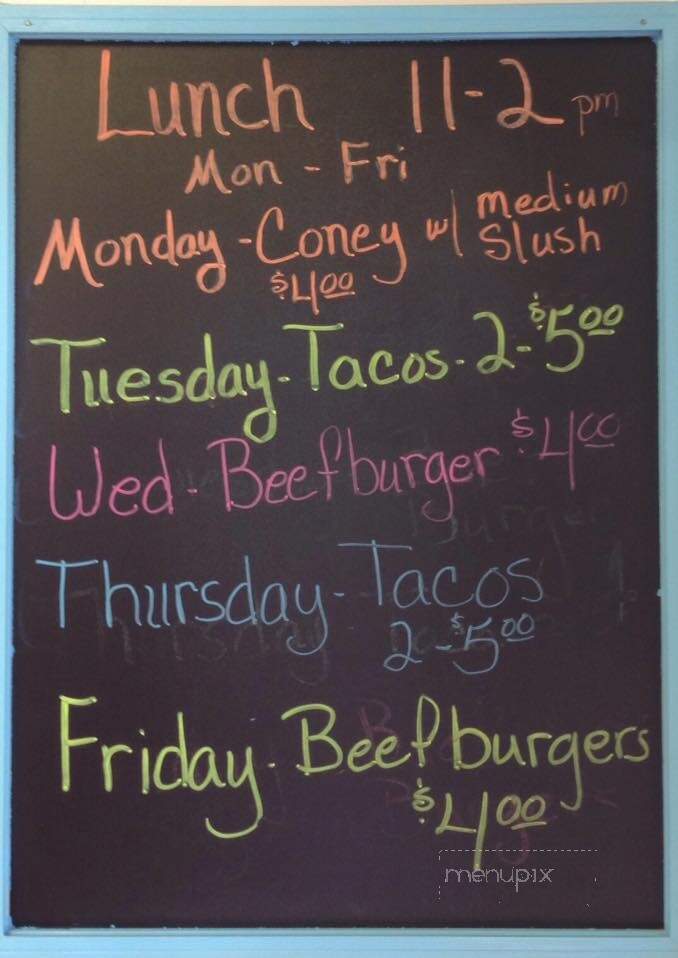 Lunch 11-2 pm
Mon - Fri
Monday - Coney w/ medium Slush
$4.00
Tuesday - Tacos - 2 - $5.00
Wed - Beefburger $4.00
Thursday - Tacos
2 - $5.00
Friday - Beefburgers
$4.00
menupix